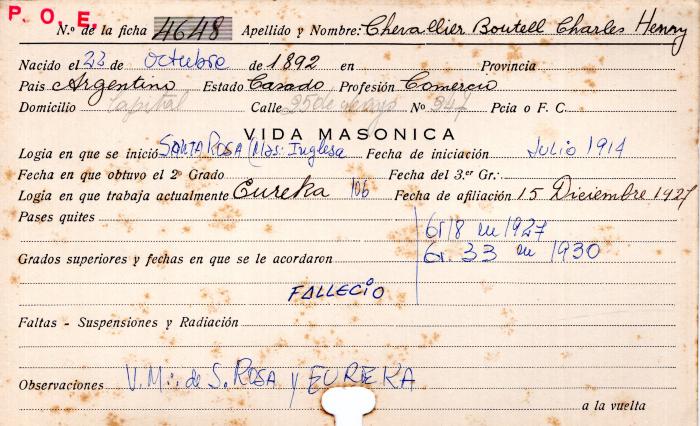 P. O. E.
N.º de la ficha 4648 Apellido y Nombre: Chevallier Boutell Charles Henry
Nacido el 22 de Octubre de 1892 en Provincia
Pais Argentino Estado Casado Profesión Comercio
Domicilio Capital Calle 25 de Mayo Nº 347 Pcia o F. C.
VIDA MASONICA
Logia en que se inició SANTA ROSA (Mas. Inglesa Fecha de iniciación JULIO 1914
Fecha en que obtuvo el 2º Grado Fecha del 3.er Gr.:
Logia en que trabaja actualmente Eureka 106 Fecha de afiliación 15 Diciembre 1927
Pases quites Gr 18 en 1927
Grados superiores y fechas en que se le acordaron Gr. 33 en 1930
FALLECIO
Faltas - Suspensiones y Radiación
Observaciones V. M.: de S. ROSA y EUREKA
a la vuelta